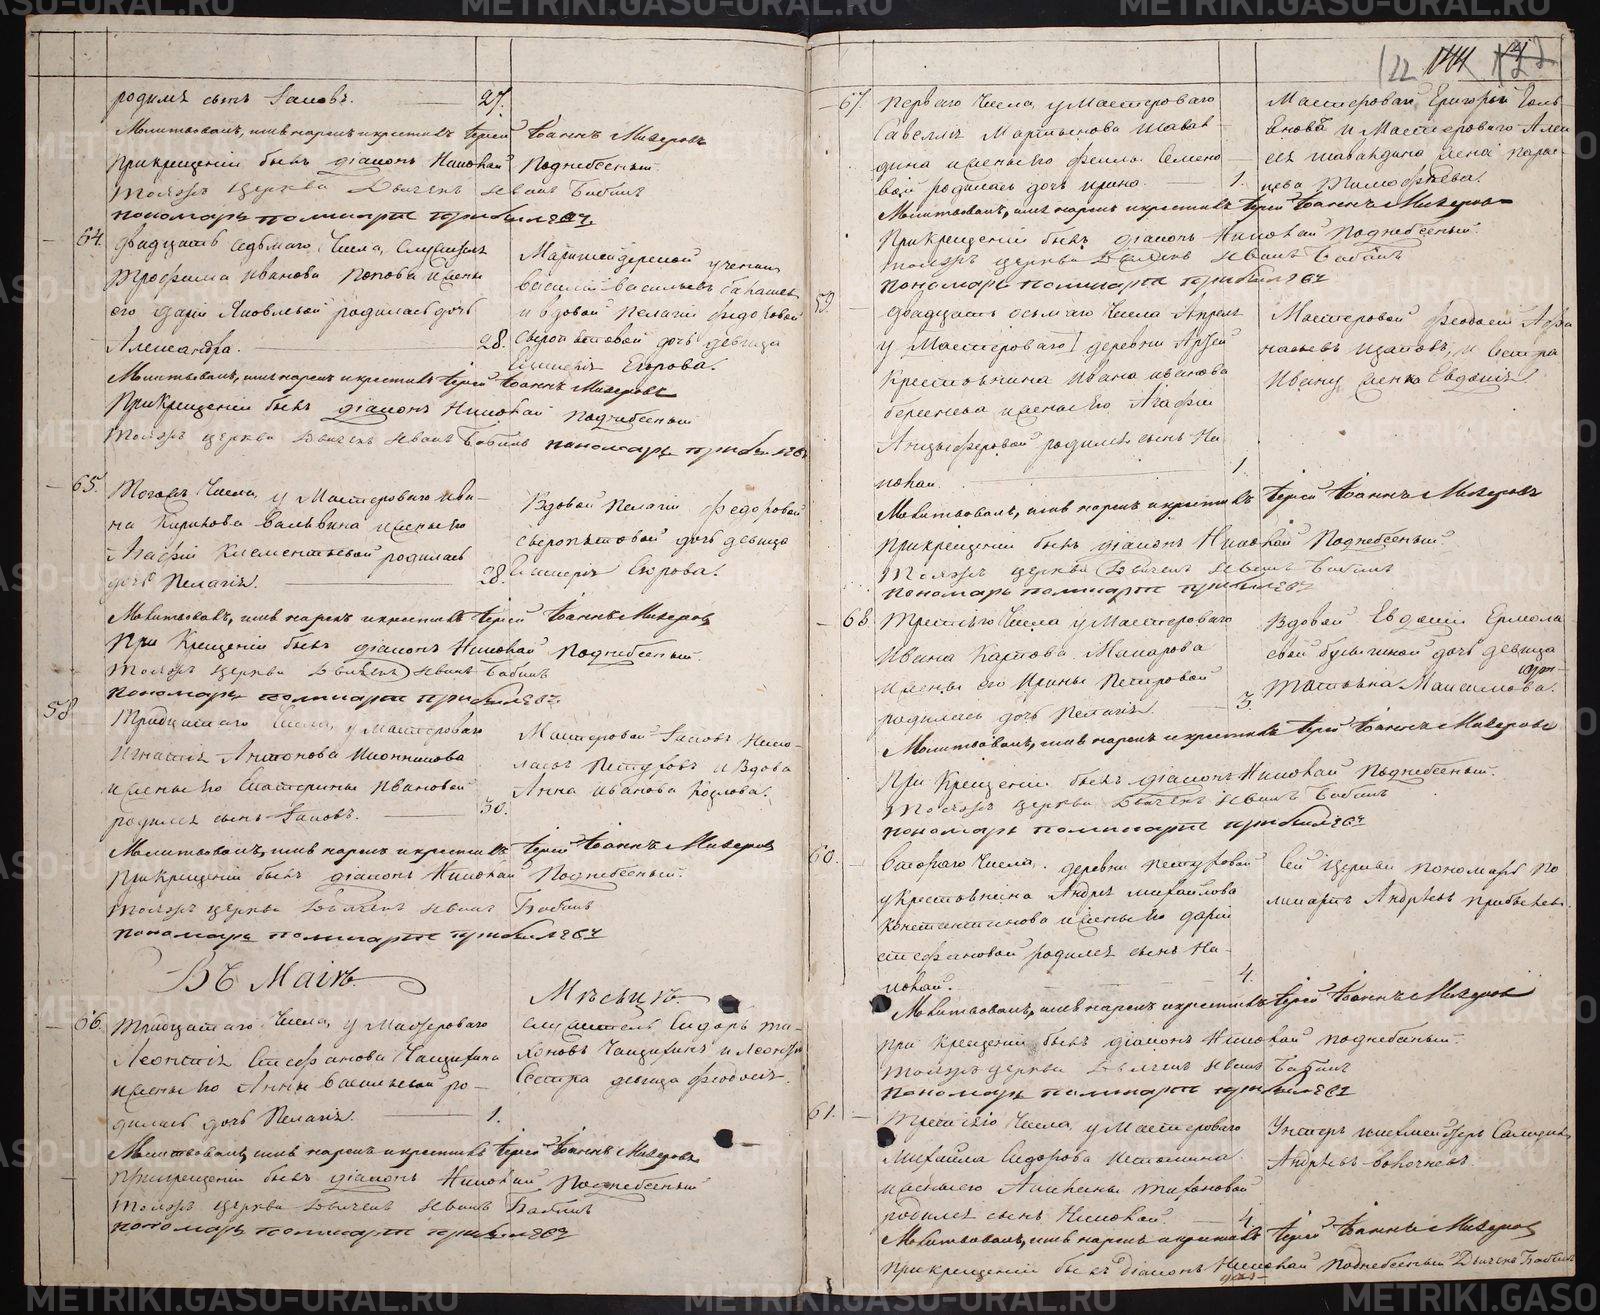 родился сынъ Іаковъ. 27.
Молитвовалъ, имя нарекъ и крестилъ Іерей Іоаннъ Макаровъ
При крещеніи былъ діаконъ Николай Поднебесный
Тояжъ церкви Дьячекъ Иванъ Бабинъ
пономарь поликарпъ прибылевъ
64. двадцать седьмаго числа, служителя
Трофима Иванова Попова и жены
его Даріи Яковлевой родилась дочь
Александра. 28.
Василій Васильевъ
и вдовой Пелагіи Федоровой
дочь девица
Егорова.
Молитвовалъ, имя нарекъ и крестилъ Іерей Іоаннъ Макаровъ
При крещеніи былъ діаконъ Николай Поднебесный
Тояжъ церкви Дьячекъ Иванъ Бабинъ пономарь прибылевъ
65. Тогожъ числа, у Мастероваго Ива-
на и жены его
Агафіи Климентьевой родилась
дочь Пелагія. 28.
Вдовой Пелагіи Федоровой
дочь девица
Егорова.
Молитвовалъ, имя нарекъ и крестилъ Іерей Іоаннъ Макаровъ
При крещеніи былъ діаконъ Николай Поднебесный.
Тояжъ церкви Дьячекъ Иванъ Бабинъ
пономарь поликарпъ прибылевъ
58. Тридцатаго числа, у мастероваго
Игнатія Антонова Иконникова
и жены его Екатерины Ивановой
родился сынъ Іаковъ. 30.
Мастеровой Іаковъ Нико-
лаевъ Петуховъ и Вдова
Анна Иванова Козлова.
Молитвовалъ, имя нарекъ и крестилъ Іерей Іоаннъ Макаровъ
При крещеніи былъ діаконъ Николай Поднебесный.
Тояжъ церкви Дьячекъ Иванъ Бабинъ
пономарь поликарпъ прибылевъ
Въ Маіѣ Мѣсяцѣ.
66. тридцатаго числа, у Мастероваго
Леонтія Стефанова Чащихина
и жены его Анны Васильевой ро-
дилась дочь Пелагія. 1.
служитель Сидоръ Ти-
хоновъ Чащихинъ и Леонтія
Сестра девица Феодосія.
Молитвовалъ, имя нарекъ и крестилъ Іерей Іоаннъ Макаровъ
При крещеніи былъ діаконъ Николай Поднебесный
Тояжъ церкви Дьячекъ Иванъ Бабинъ
пономарь поликарпъ прибылевъ
122
67. перваго числа, у Мастероваго
Савелія Мартынова Шаван-
дина и жены его Феклы Семено-
вой родилась дочь Ирина. 1.
Мастеровой Григорій
и Мастероваго Алек-
сея Шавандина жена Парас-
кева Тимофеева.
Молитвовалъ, имя нарекъ и крестилъ Іерей Іоаннъ Макаровъ
При крещеніи былъ діаконъ Николай Поднебесный.
Тояжъ церкви Дьячекъ Иванъ Бабинъ
пономарь поликарпъ прибылевъ
59. двадцать осьмаго числа Апреля
у Мастероваго деревни
Крестьянина Ивана Иванова
и жены его Агафіи
Анцыферовой родился сынъ Ни-
колай. 1.
Мастеровой Феодосій Афа-
насьевъ и Сестра
Ивану Евдокія.
Молитвовалъ, имя нарекъ и крестилъ Іерей Іоаннъ Макаровъ
При крещеніи былъ діаконъ Николай Поднебесный
Тояжъ церкви Дьячекъ Иванъ Бабинъ
пономарь поликарпъ прибылевъ
68. Третьяго числа у Мастероваго
Ивана Карпова Макарова
и жены его Ирины Петровой
родилась дочь Пелагія. 3.
Вдовой Евдокіи Ермола-
евой дочь девица
Татьяна Максимова.
Молитвовалъ, имя нарекъ и крестилъ Іерей Іоаннъ Макаровъ
При крещеніи былъ діаконъ Николай Поднебесный.
Тояжъ церкви Дьячекъ Иванъ Бабинъ
пономарь поликарпъ прибылевъ
60. втораго числа, деревни Петуховой
у крестьянина Андрея Михайлова
Константинова и жены его Даріи
Стефановой родился сынъ Ни-
колай. 4.
Сей церкви пономарь По-
ликарпъ Андреевъ Прибылевъ.
Молитвовалъ, имя нарекъ и крестилъ Іерей Іоаннъ Макаровъ
При крещеніи былъ діаконъ Николай Поднебесный.
Тояжъ церкви Дьячекъ Иванъ Бабинъ
пономарь поликарпъ прибылевъ
61. Третьяго числа, у Мастероваго
Михайла Сидорова Истомина
и жены его Тихоновой
родился сынъ Николай. 4.
Унтеръ шихмейстеръ
Андреевъ
Молитвовалъ, имя нарекъ и крестилъ Іерей Іоаннъ Макаровъ
При крещеніи былъ діаконъ Николай Поднебесный Дьячекъ Бабинъ
METRIKI.GASO-URAL.RU